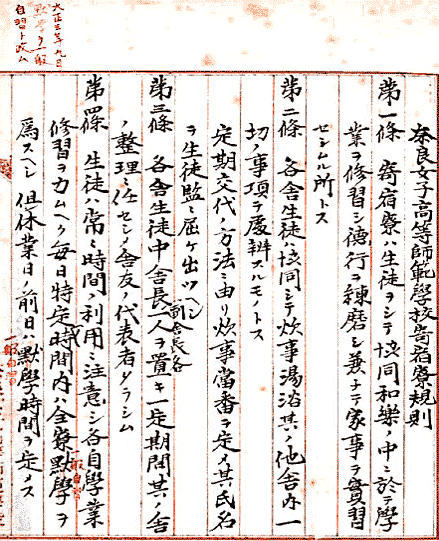 奈良女子高等師範學校寄宿寮規則
第一條 寄宿寮ハ生徒ヲシテ協同和樂ノ中ニ於テ學
業ヲ修習シ德行ヲ練磨シ兼ネテ家事ヲ實習
セシムル所トス
第二條 各舎生徒ハ協同シテ炊事湯浴其ノ他舎内一
切ノ事項ヲ處辨スルモノトス
定期交代ノ方法ニ由リ炊事當番ヲ定メ其氏名
ヲ生徒監ニ屆ケ出ツヘシ
副舎長各
第三條 各舎生徒中舎長一人ヲ置キ一定期間其ノ舎
ノ整理ニ任セシメ舎友ノ代表者タラシム
第四條 生徒ハ常ニ時間ノ利用ニ注意シ各自學業
修習ヲ力ムヘク毎日特定時間内ハ全寮默學ヲ
一般自習
爲スヘシ 但休業日ノ前日ハ默學時間ヲ定メス
一般自習
大正三年九月
默學ヲ一般
自習ト改ム